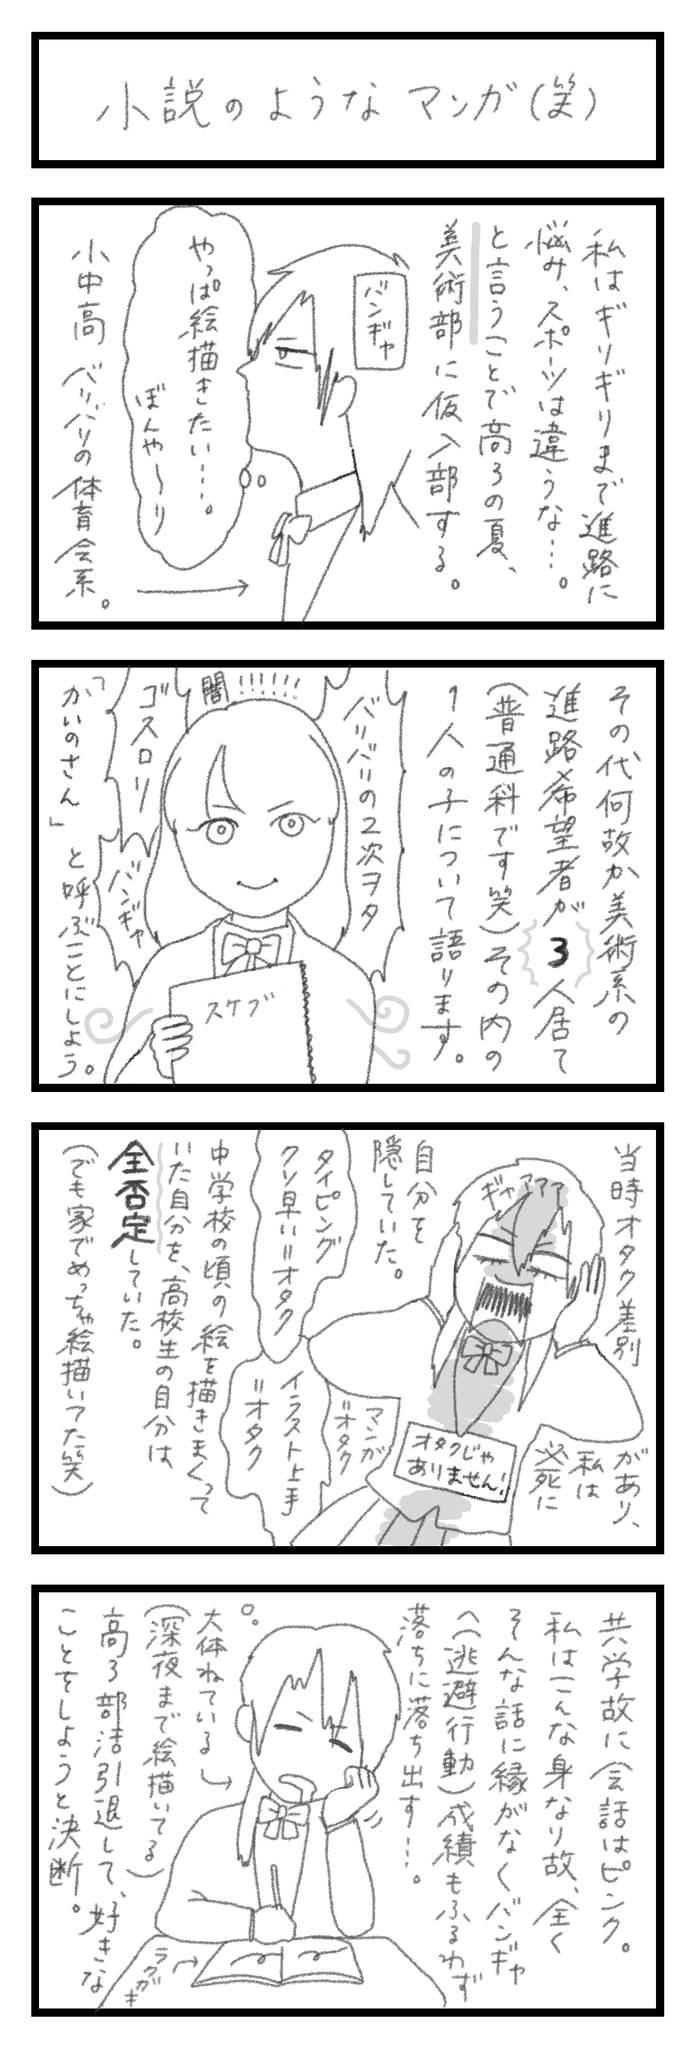 小説のような マンガ(笑)
私はギリギリまで進路に
悩み、スポーツは違うな…。
と言うことで高3の夏、
美術部に仮入部する。
バンギャ
やっぱ絵描きたい…。
ぼんや〜り
小中高 バリバリの体育会系。
その代何故か美術系の
進路希望者が3人居て
(普通科です笑)その内の
1人の子について語ります。
バリバリの2次ヲタ
闇!!!!!!!
ゴスロリ
バンギャ
スケブ
「かいのさん」と呼ぶことにしよう。
当時オタク差別
があり、
私は
必死に
自分を
隠していた。
ギャアアア
オタクじゃ
ありません!
タイピング
クソ早い=オタク
マンガ
=オタク
イラスト上手
=オタク
中学校の頃の絵を描きまくって
いた自分を、高校生の自分は
全否定していた。
(でも家でめっちゃ絵描いてた笑)
共学故に(会話はピンク。
私はこんな身なり故、全く
そんな話に縁がなくバンギャ
(逃避行動)成績もふるわず
落ちに落ち出す…。
大体ねている
(深夜まで絵描いてる)
高3部活引退して、好きな
ことをしようと決断。
ラクガキ